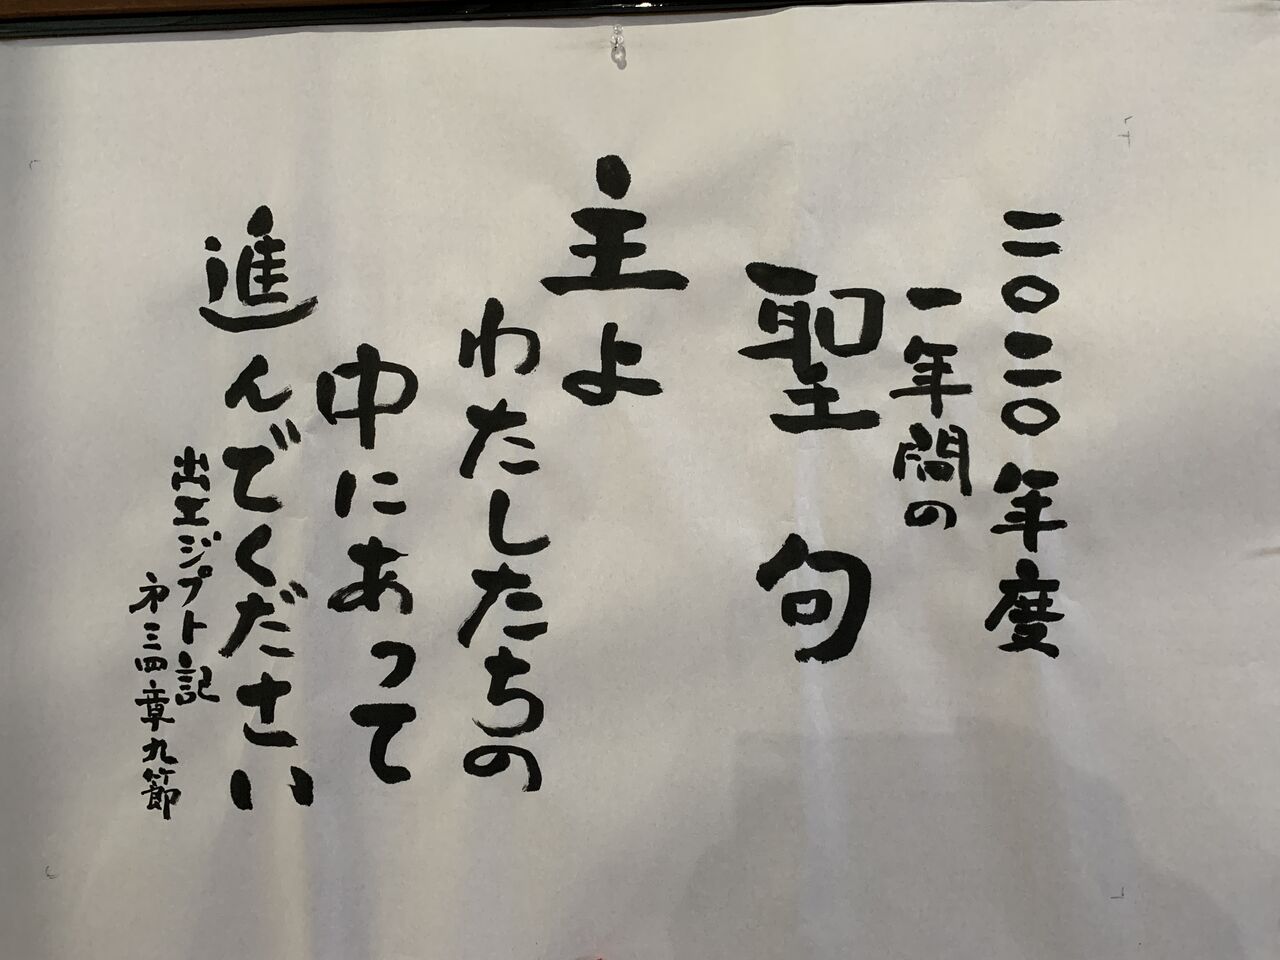 二〇二〇年度
一年間の
聖句
主よ
わたしたちの
中にあって
進んでください
出エジプト記
第三四章九節